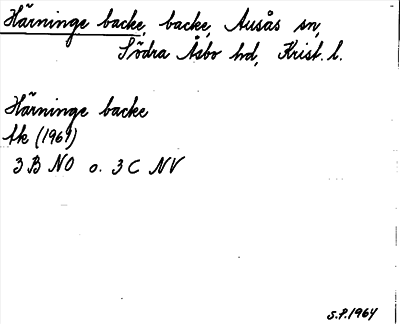 Härninge backe, backe, Ausås sn,
Södra Åsbo hd, Krist. l.
Härninge backe
tk (1961)
3 B NO o. 3 C NV
S.P. 1964